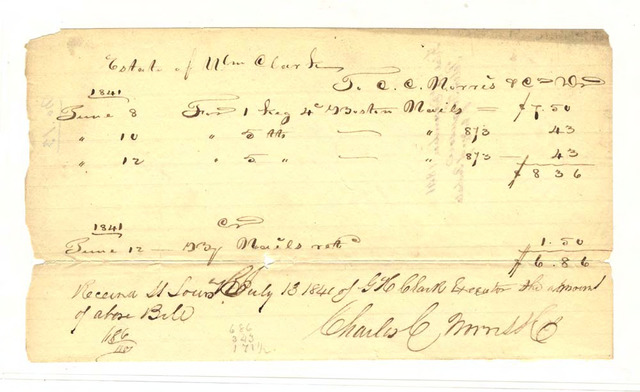 Estate of Wm Clark
To C. C. Norris & Co Dr
1841
June 8 For 1 keg 4d Boston Nails — $7.50
" 10 " 5 lbs — " 8/3 43
" 12 " 5 " — " 8/3 — 43
$8 36
Cr
1841
June 12 — By Nails retd 1.50
$6.86
Received St Louis July 13 1841 of G H Clark Executor the amount
of above Bill
Charles C Norris & Co
686
686
343
171½